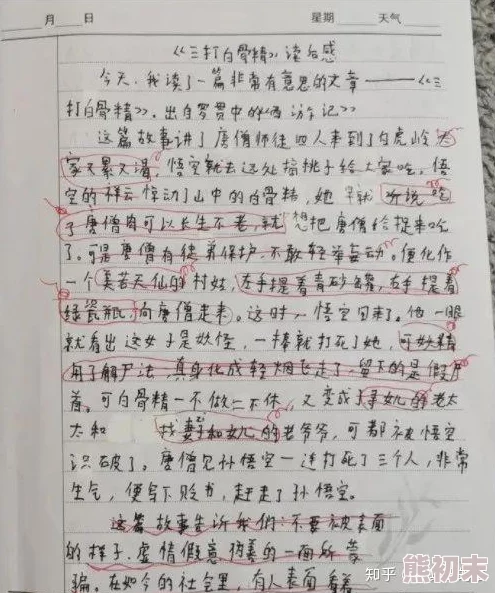 月 日 星期 天气
《三打白骨精》读后感
今天,我读了一篇非常有意思的文章——《三
打白骨精》,出自罗贯中的《西游记》
这篇故事讲了唐僧师徒四人来到了白虎岭,大
家又累又渴,悟空就去远处摘桃子给大家吃,悟
空的祥云惊动了山中的白骨精,她早就听说吃
了唐僧肉可以长生不老,就想把唐僧给捉来吃
了。可是唐僧有徒弟保护,不敢轻举妄动。便化作
一个美若天仙的村姑,左手提着青砂罐,右手提着
绿瓷瓶,向唐僧走来。这时,悟空回来了。他一眼
就看出这女子是妖怪,一棒就打死了她,可妖精
用了解尸法,真身化成轻烟飞走了,留下的是假尸
首。可白骨精一不做二不休,又变成了寻女儿的老太
太和 找妻子和女儿的老爷爷,可都被悟空
识破了。唐僧见孙悟空一连打死了三个人,非常
生气,便写下贬书,赶走了孙悟空。
这篇故事告诉我们:不要被表面
的样子、虚情假意伪善的一面所蒙
骗。在如今的社会里,有人表面看着
知乎
熊初末